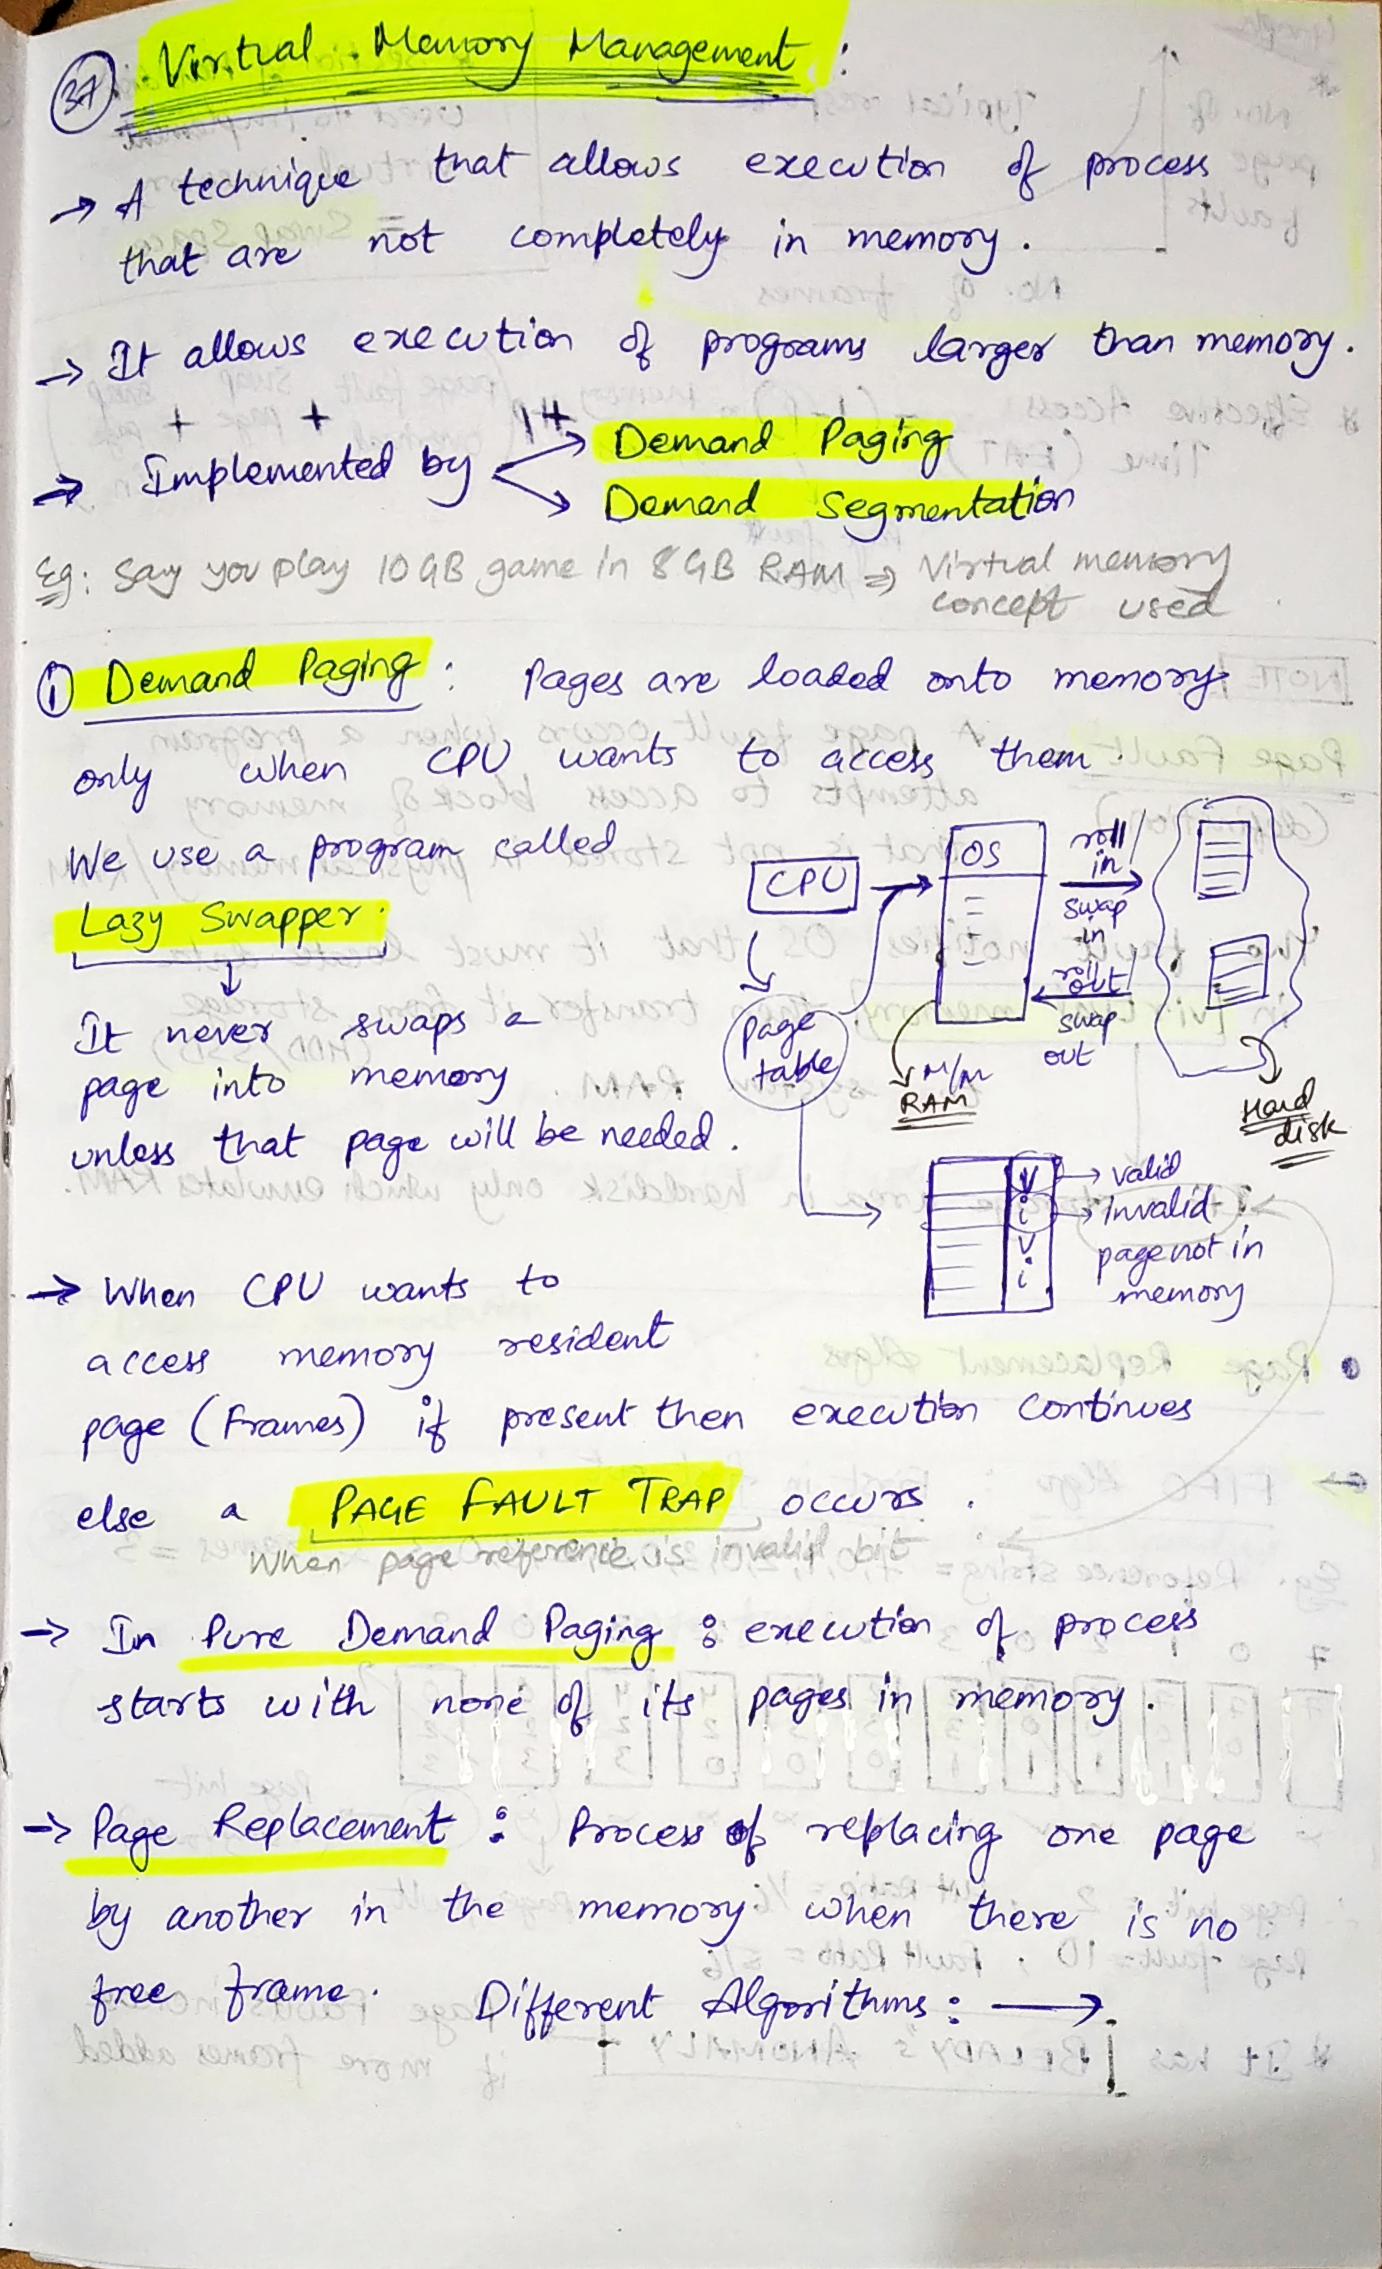 37 Virtual Memory Management :
→ A technique that allows execution of process
that are not completely in memory.
→ It allows execution of programs larger than memory.
→ Implemented by
Demand Paging
Demand Segmentation
Eg: Say you play 10GB game in 8GB RAM ⇒ Virtual memory
concept used
① Demand Paging : Pages are loaded onto memory
only when CPU wants to access them.
We use a program called
Lazy Swapper.
It never swaps a
page into memory
unless that page will be needed.
CPU
Page
table
OS
M/M
RAM
roll/
in
swap
in
roll/
out
swap
out
Hard
disk
V → valid
i → invalid
V
i
page not in
memory
→ When CPU wants to
access memory resident
page (Frames) if present then execution continues
else a PAGE FAULT TRAP occurs.
When page reference is invalid bit
→ In Pure Demand Paging : execution of process
starts with none of its pages in memory.
→ Page Replacement : Process of replacing one page
by another in the memory when there is no
free frame. Different Algorithms : →